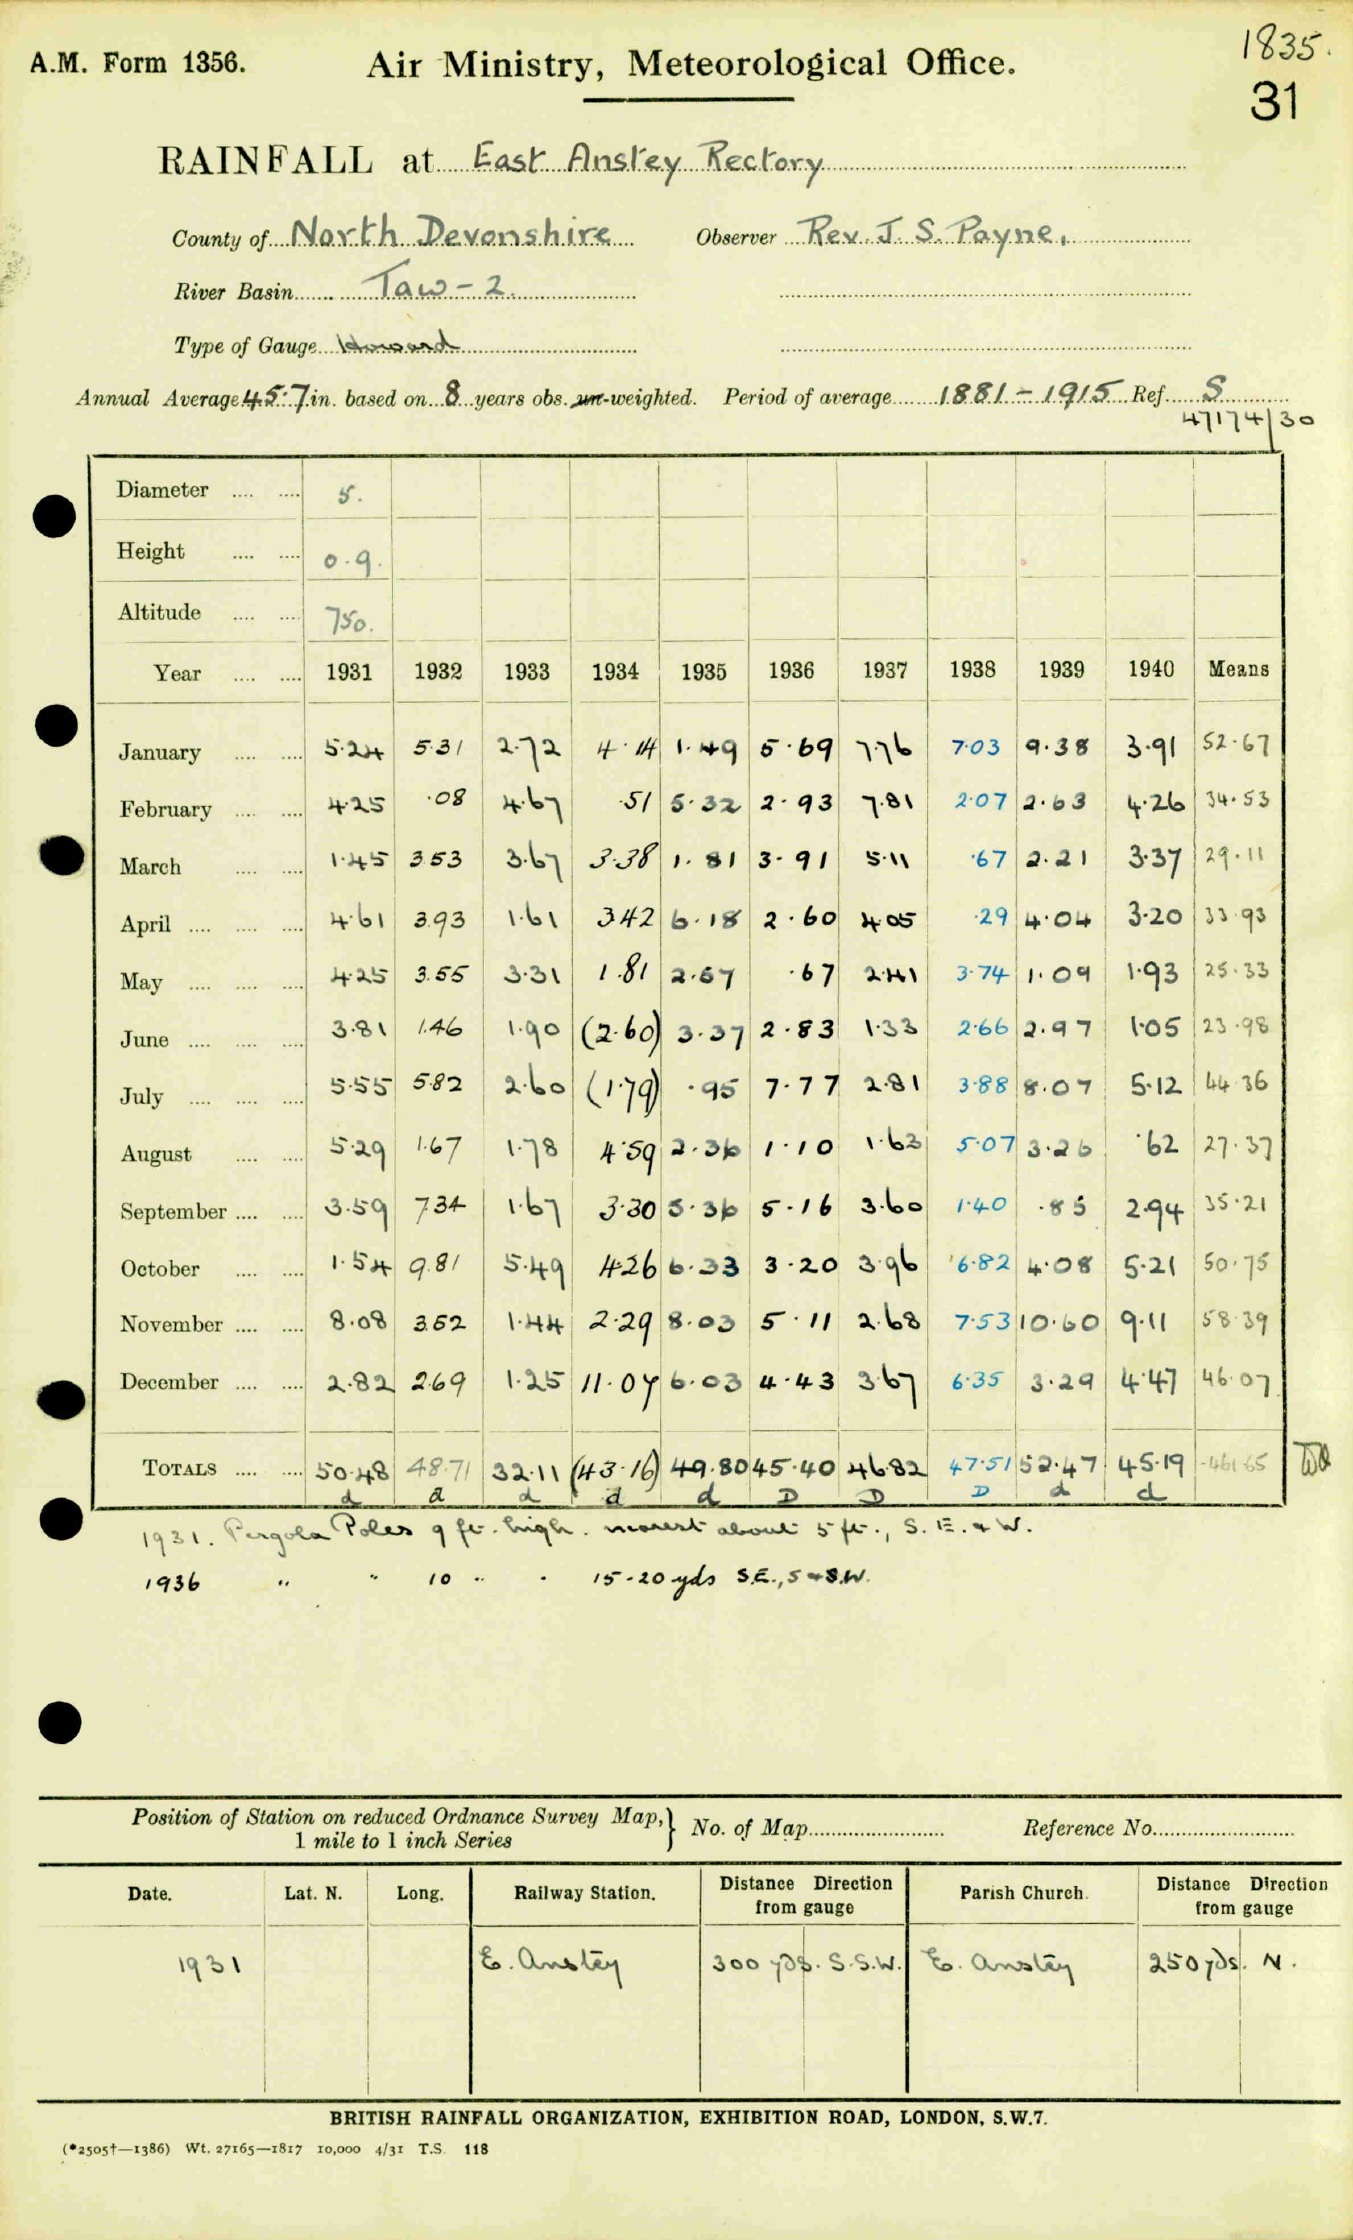 1835.
A.M. Form 1356. Air Ministry, Meteorological Office.
31
RAINFALL at East Anstey Rectory
County of North Devonshire Observer Rev. J. S. Payne,
River Basin Taw - 2.
Type of Gauge Howard
Annual Average 45.7 in. based on 8 years obs. un-weighted. Period of average 1881 - 1915 Ref. S
47174/30
Diameter 5.
Height 0.9.
Altitude 750.
Year 1931 1932 1933 1934 1935 1936 1937 1938 1939 1940 Means
January 5.24 5.31 2.72 4.14 1.49 5.69 7.76 7.03 9.38 3.91 52.67
February 4.25 .08 4.67 .51 5.32 2.93 7.81 2.07 2.63 4.26 34.53
March 1.45 3.53 3.67 3.38 1.81 3.91 5.11 .67 2.21 3.37 29.11
April 4.61 3.93 1.61 3.42 6.18 2.60 4.05 .29 4.04 3.20 33.93
May 4.25 3.55 3.31 1.81 2.57 .67 2.41 3.74 1.09 1.93 25.33
June 3.81 1.46 1.90 (2.60) 3.37 2.83 1.33 2.66 2.97 1.05 23.98
July 5.55 5.82 2.60 (1.79) .95 7.77 2.81 3.88 8.07 5.12 44.36
August 5.29 1.67 1.78 4.59 2.36 1.10 1.63 5.07 3.26 .62 27.37
September 3.59 7.34 1.67 3.30 5.36 5.16 3.60 1.40 .85 2.94 35.21
October 1.54 9.81 5.49 4.26 6.33 3.20 3.96 6.82 4.08 5.21 50.75
November 8.08 3.52 1.44 2.29 8.03 5.11 2.68 7.53 10.60 9.11 58.39
December 2.82 2.69 1.25 11.07 6.03 4.43 3.67 6.35 3.29 4.47 46.07
TOTALS 50.48 48.71 32.11 (43.16) 49.80 45.40 46.82 47.51 52.47 45.19 461.65
d d d d d D D D d d
1931. Pergola Poles 9 ft. high. nearest about 5 ft., S. E. & W.
1936 " " 10 " " 15-20 yds S.E., S & S.W.
Position of Station on reduced Ordnance Survey Map, } No. of Map Reference No.
1 mile to 1 inch Series
Date. Lat. N. Long. Railway Station. Distance Direction from gauge Parish Church. Distance Direction from gauge
1931 E. Anstey 300 yds. S.S.W. E. Anstey 250 yds. N.
BRITISH RAINFALL ORGANIZATION, EXHIBITION ROAD, LONDON, S.W.7.
(*2505†—1386) Wt. 27165—1817 10,000 4/31 T.S. 118